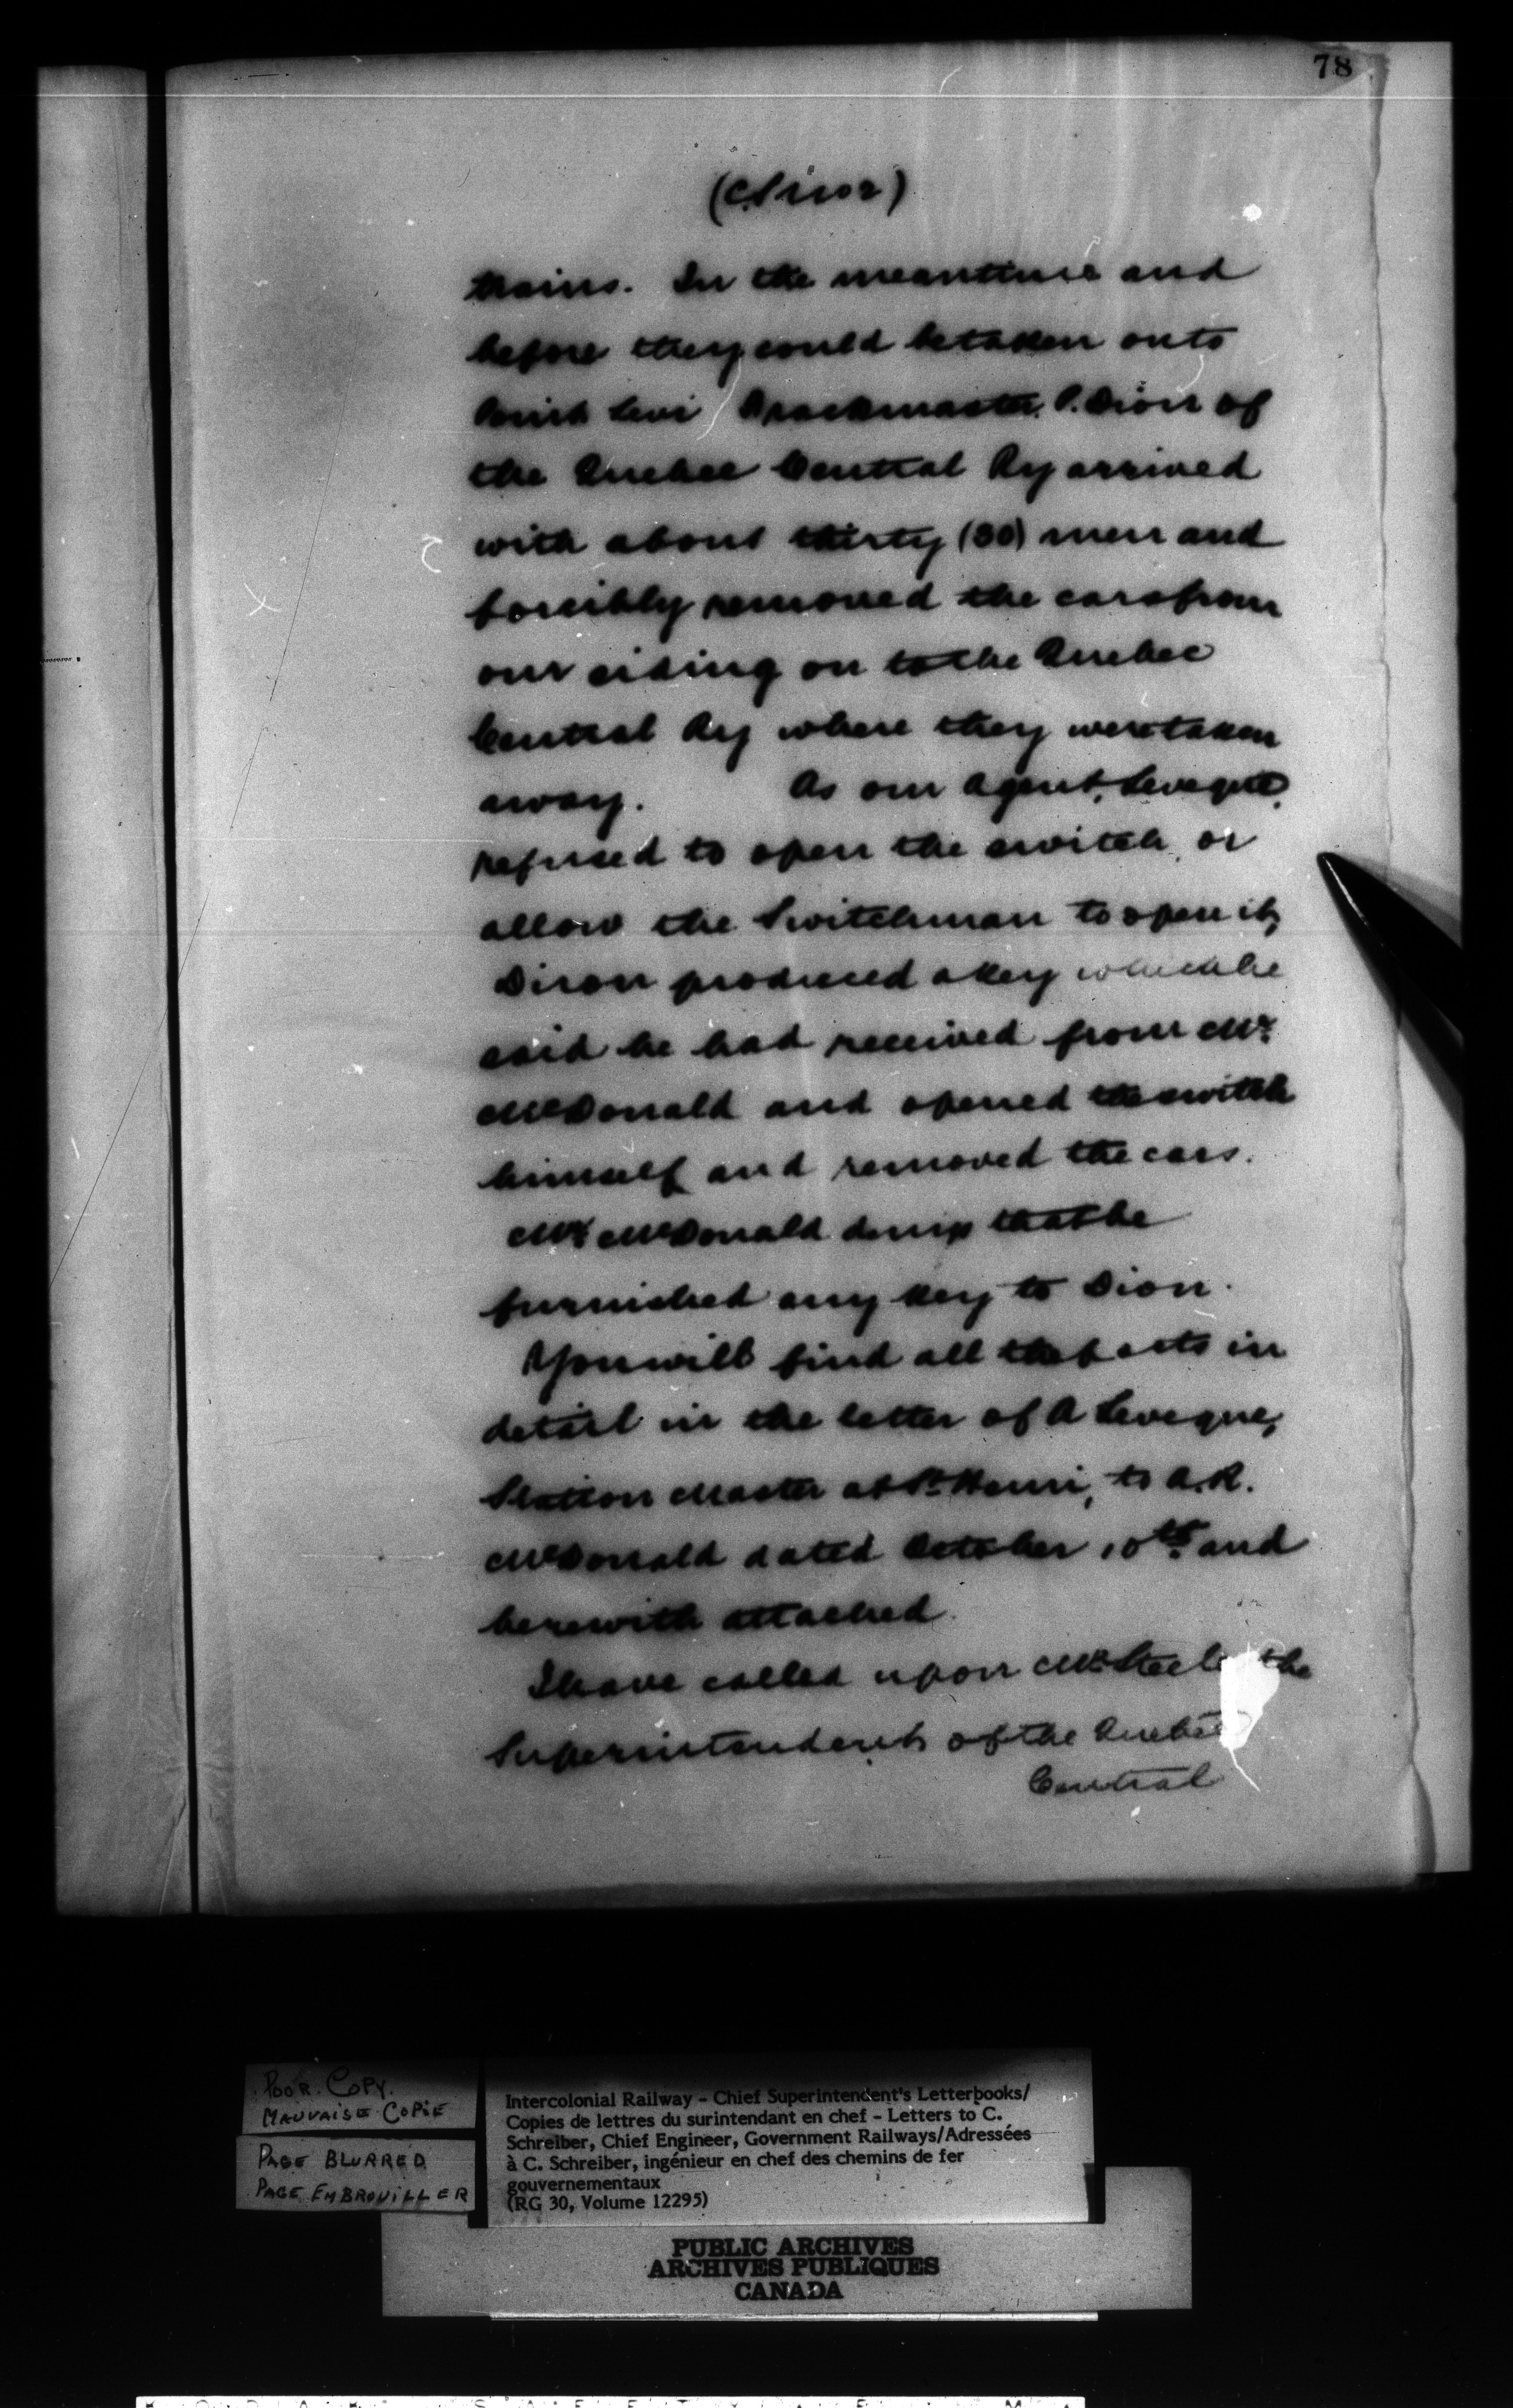 78
trains. In the meantime and
before they could be taken out to
Point Levi Trackmaster P. Dion of
the Quebec Central Ry arrived
with about thirty (30) men and
forcibly removed the cars from
our siding on to the Quebec
Central Ry where they were taken
away. As our Agent, Leveque,
refused to open the switch, or
allow the Switchman to open it,
Dion produced a key which he
said he had received from Mr.
McDonald and opened the switch
himself and removed the cars.
Mr. McDonald denies that he
furnished any key to Dion.
You will find all the facts in
detail in the letter of A Leveque,
Station Master at St. Henri, to A.R.
McDonald dated October 10th. and
herewith attached.
I have called upon Mr. Steele the
Superintendent of the Quebec
Central
POOR COPY.
MAUVAISE COPIE
PAGE BLURRED
PAGE EMBROUILLER
Intercolonial Railway - Chief Superintendent's Letterbooks/
Copies de lettres du surintendant en chef - Letters to C.
Schreiber, Chief Engineer, Government Railways/Adressées
à C. Schreiber, ingénieur en chef des chemins de fer
gouvernementaux
(RG 30, Volume 12295)
PUBLIC ARCHIVES
ARCHIVES PUBLIQUES
CANADA